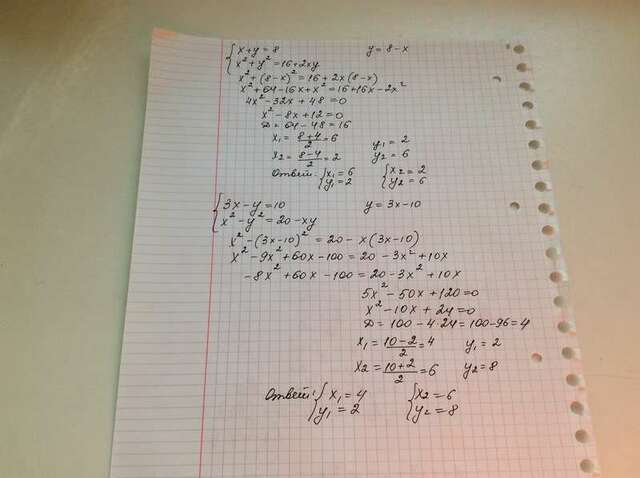 { x + y = 8      y = 8 - x
x² + y² = 16 + 2xy
x² + (8-x)² = 16 + 2x(8-x)
x² + 64 - 16x + x² = 16 + 16x - 2x²
4x² - 32x + 48 = 0
x² - 8x + 12 = 0
D = 64 - 48 = 16
x₁ = (8+4)/2 = 6      y₁ = 2
x₂ = (8-4)/2 = 2      y₂ = 6
Ответ: { x₁ = 6      { x₂ = 2
y₁ = 2      y₂ = 6
{ 3x - y = 10      y = 3x - 10
x² - y² = 20 - xy
x² - (3x-10)² = 20 - x(3x-10)
x² - 9x² + 60x - 100 = 20 - 3x² + 10x
-8x² + 60x - 100 = 20 - 3x² + 10x
5x² - 50x + 120 = 0
x² - 10x + 24 = 0
D = 100 - 4·24 = 100 - 96 = 4
x₁ = (10-2)/2 = 4      y₁ = 2
x₂ = (10+2)/2 = 6      y₂ = 8
Ответ: { x₁ = 4      { x₂ = 6
y₁ = 2      y₂ = 8